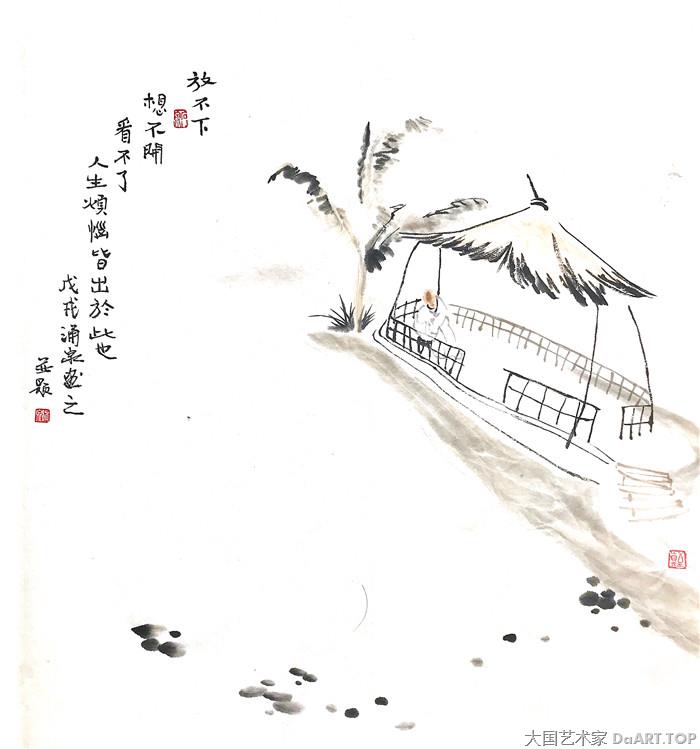 放不下
想不開
看不了
人生煩惱皆出於此也
戊戌涌泉画之
並题
大国艺术家 DaART.TOP